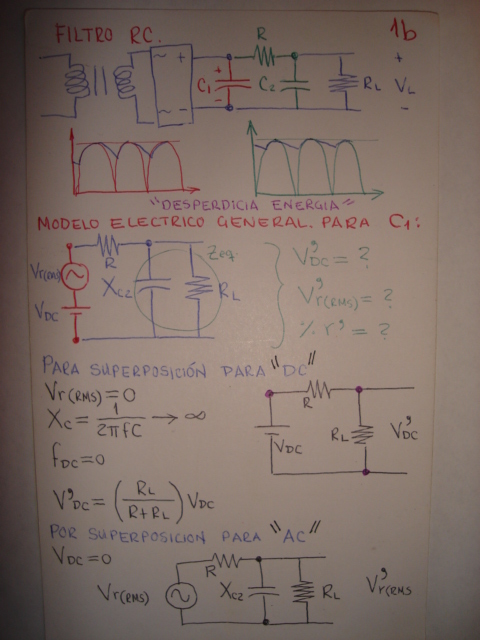 FILTRO RC. 1b
R
~ + + +
C1 C2 RL VL
~ - - -
"DESPERDICIA ENERGIA"
MODELO ELECTRICO GENERAL. PARA C1:
R Zeq.
Vr(RMS) XC2 RL
VDC
V'DC = ?
V'r(RMS) = ?
% r' = ?
PARA SUPERPOSICIÓN PARA "DC"
Vr(RMS) = 0
XC = 1/2πfC → ∞
fDC = 0
R
VDC RL V'DC
V'DC = (RL/R+RL) VDC
POR SUPERPOSICION PARA "AC"
VDC = 0
R
Vr(RMS) XC2 RL V'r(RMS